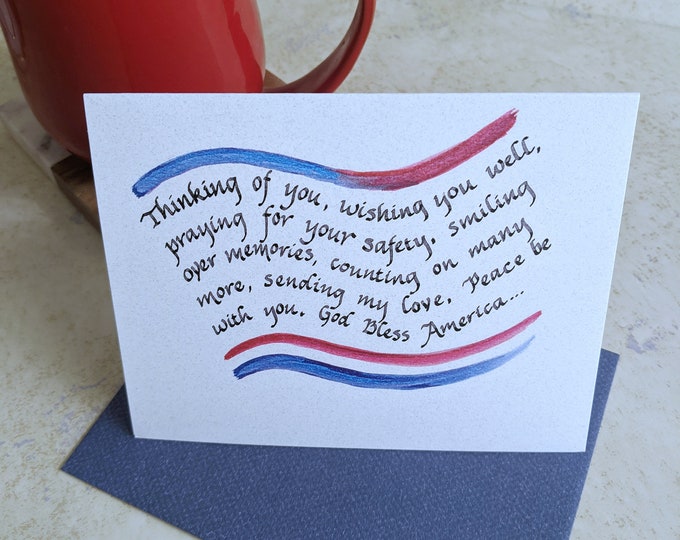 Thinking of you, wishing you well,
praying for your safety. smiling
over memories, counting on many
more, sending my love. Peace be
with you. God Bless America...